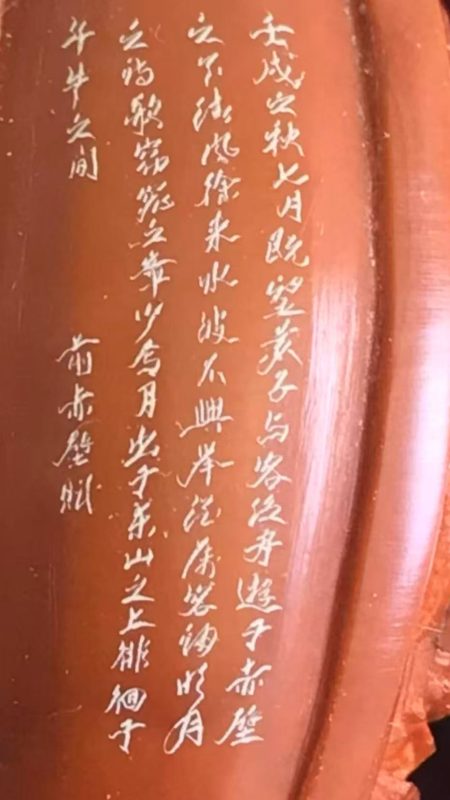 壬戌之秋七月既望苏子与客泛舟遊于赤壁
之下清风徐来水波不興举酒属客诵明月
之诗歌窈窕之章少焉月出于东山之上徘徊于
斗牛之间
前赤壁赋